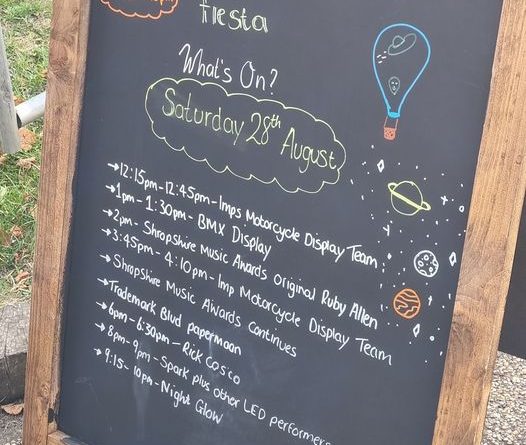 fiesta
What's On?
Saturday 28th August
→12:15pm-12:45pm-Imps Motorcycle Display Team
→1pm-1:30pm- BMX Display
→2pm- Shropshire Music Awards Original Ruby Allen
→3:45pm-4:10pm-Imp Motorcycle Display Team
→Shropshire Music Awards Continues
→Trademark Blud papermoon
→6pm-6:30pm- Rick Cosco
→8pm-9pm-Spark plus other LED performers
→9:15-10pm-Night Glow